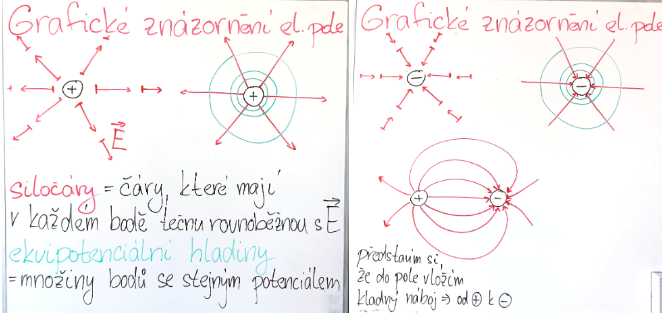 Grafické znázornění el. pole
+
+
E
siločáry = čáry, které mají
v každém bodě tečnu rovnoběžnou s E
ekvipotenciální hladiny
= množiny bodů se stejným potenciálem
Grafické znázornění el. pole
-
-
+ -
představím si,
že do pole vložím
kladný náboj ⇒ od ⊕ k ⊖